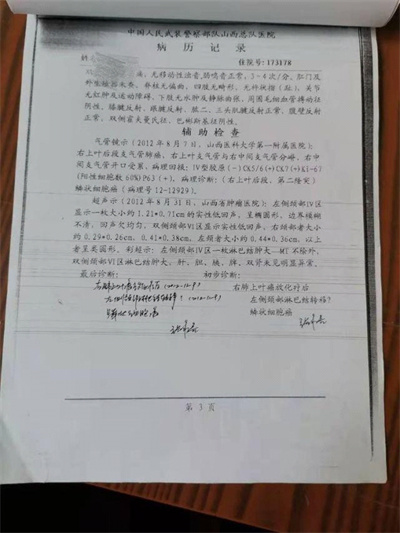 中国人民武装警察部队山西总队医院
病 历 记 录
住院号:173178
痛, 无移动性浊音, 肠鸣音正常, 3-4次/分, 肛门及
外生殖器未查, 脊柱无偏曲, 四肢无畸形, 无杵状指(趾), 关节
无红肿及运动障碍, 下肢无水肿及静脉曲张, 周围毛细血管搏动征
阴性。膝腱反射, 跟腱反射, 肱二、三头肌腱反射正常, 腹壁反射
正常, 双侧霍夫曼氏征、巴彬斯基征阴性。
辅 助 检 查
气管镜示(2012年8月7日, 山西医科大学第一附属医院):
右上叶后段支气管肺癌, 右上叶支气管与右中间支气管分嵴, 右中
间支气管开口受累, 病理回报: IV型胶原(-)CK5/6(+)CK7(+)Ki-6)
(阳性细胞数60%)P63(+), 病理诊断: (右上叶后段、第二隆突)
鳞状细胞癌(病理号12-12929)。
超声示(2012年8月31日, 山西省肿瘤医院): 左侧颈部IV区
显示一枚大小约1.21*0.71cm的实性低回声, 呈椭圆形, 边界模糊
不清, 回声欠均匀, 双侧颈部IV区显示实性低回声, 右颈部者大小
约0.29*0.26cm, 0.41*0.38cm, 左颈者大小约0.44*0.36cm, 以上
者呈类圆形, 彩超示: 左侧颈部IV区一枚淋巴结肿大—MT不除外,
双侧颈部IV区淋巴结肿大; 肝、胆、胰、脾、双肾未见明显异常。
最后诊断: 初步诊断:
右肺上叶癌放化疗后
左侧颈部淋巴结转移?
鳞状细胞癌
第 3 页